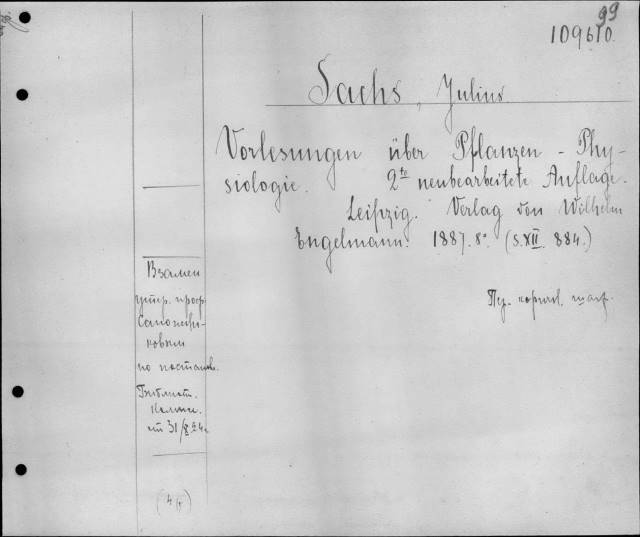 99
109610.
Sachs, Julius.
Vorlesungen über Pflanzen - Phy-
siologie. 2te neubearbeitete Auflage.
Leipzig. Verlag von Wilhelm
Engelmann. 1887. 8°. (S. XII. 884.)
Взамен
утр. проф.
Сапожни-
ковым
по постанов.
Библиот.
Комисс.
от 31/X 24 г.